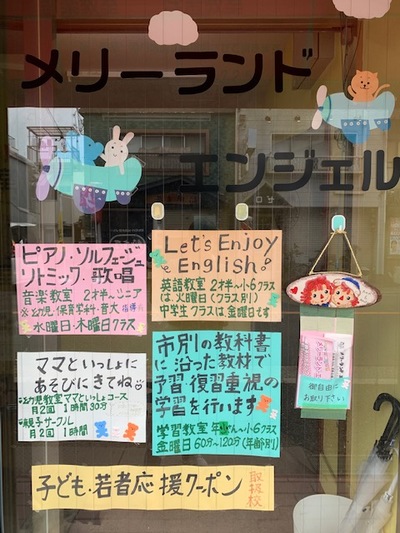 メリーランド
エンジェル
ピアノ・ソルフェージュ
リトミック・歌唱
音楽教室 2才半〜シニア
※幼児・保育学科・音大 指導
水曜日・木曜日クラス
Let's Enjoy
English!
英語教室 2才半〜小6クラス
は、火曜日(クラス別)
中学生クラスは、金曜日です
ママといっしょに
あそびにきてね
※幼児教室ママといっしょコース
月2回 1時間30分
※親子サークル
月2回 1時間
市別の教科書
に沿った教材で
予習・復習重視の
学習を行います
学習教室 年少〜小6クラス
金曜日 60分〜120分(年齢別)
御自由に
お取り下さい
子ども・若者応援クーポン 取扱校